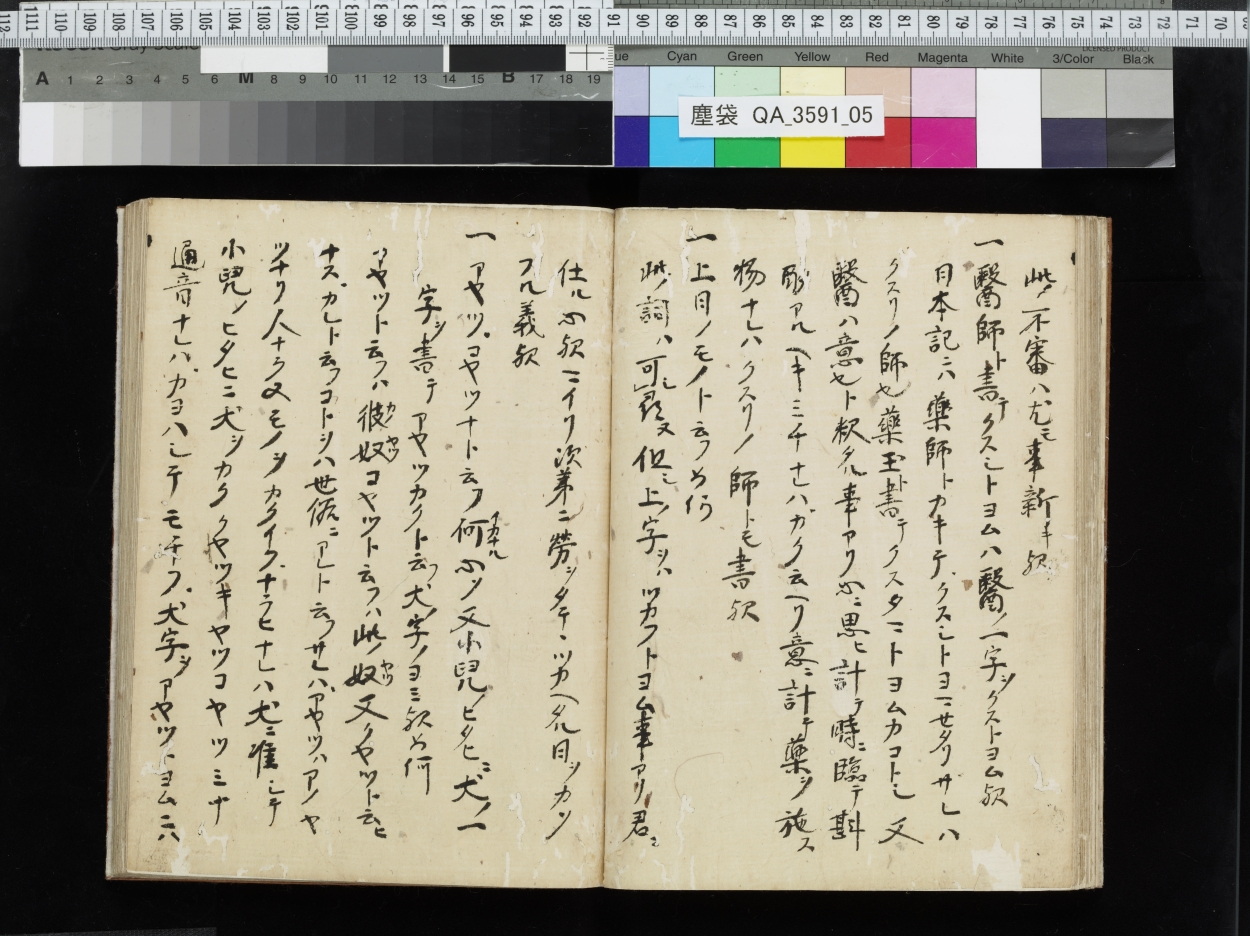 塵袋 QA_3591_05
此ノ不審ハ尤ニ事新キ歟
一 醫師ト書テクスシトヨム ハ醫ノ一字ヲクストヨム歟
日本記ニハ藥師トカキテクスシトヨマセタリサレハ
クスリノ師也藥玉ト書テクスタマトヨムカコトシ又
醫ハ意也ト釈タル事アリ心ニ思ヒ計テ時ニ臨テ斟
酌アルヘキミチナレハカク云ヘリ意ニ計テ藥ヲ施ス
物ナレハクスリノ師トモ書歟
一 上目ノモノト云フ如何
此ノ詞ハ可尋之又但シ上ノ字ヲハツカフトヨム事アリ君ニ
仕ル心歟マイリ次第ニ勞シタテマツカヘタル目ヲカン
フル義歟
一 アヤツコヤツナト云フ何ナル心ソ又小兒ノヒタヒニ犬ノ一
字ヲ書テアヤツカクト云フ犬ノ字ノヨミ歟如何
アヤツト云フハ彼奴コヤツト云フハ此ノ奴又クヤツト云ヒ
ナスカレト云フコトヲハ世俗ニアレト云フサレハアヤツハアノヤ
ツナリ人ナラヌモノヲカクイフナラヒナレハ犬ニ准シテ
小兒ノヒタヒニ犬ヲカククヤツキヤツコヤツミナ
通音ナレハカヨハシテモチフ犬字ヲアヤツトヨムニハ